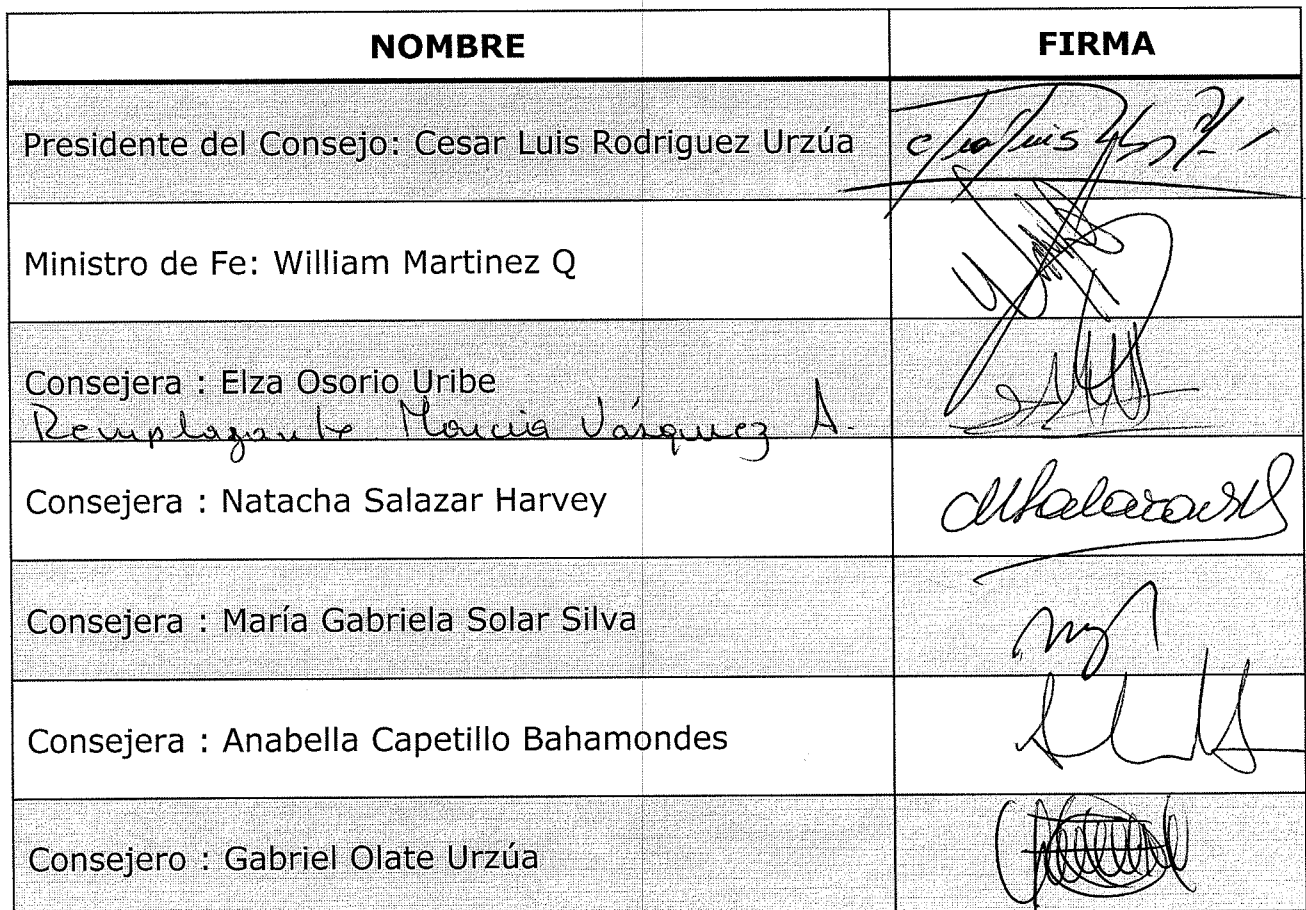 NOMBRE FIRMA
Presidente del Consejo: Cesar Luis Rodriguez Urzúa
Ministro de Fe: William Martinez Q
Consejera : Elza Osorio Uribe
Remplazante Marcia Vásquez A.
Consejera : Natacha Salazar Harvey
Consejera : María Gabriela Solar Silva
Consejera : Anabella Capetillo Bahamondes
Consejero : Gabriel Olate Urzúa